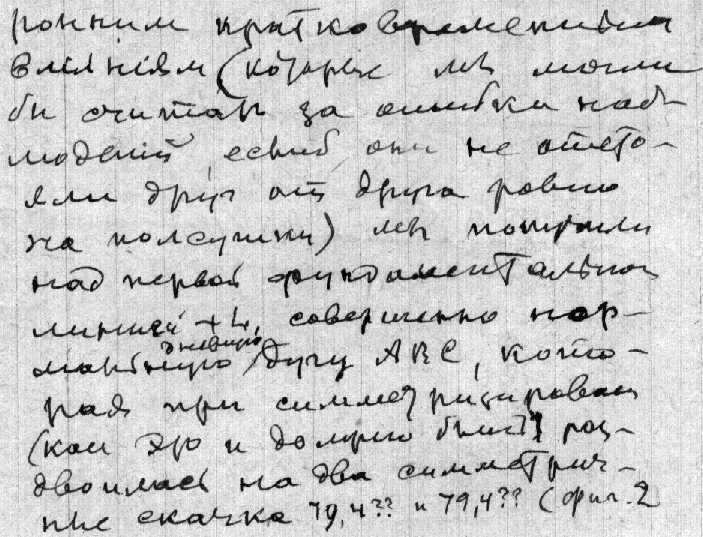 ронним кратковременным
влияниям (которые мы могли
бы считать за ошибки наб-
людений, еслиб они не отсто-
яли друг от друга ровно
на полсутки) мы получили
над первой фундаментальной
линией +L, совершенно нор-
мальную дневную дугу АВС, кото-
рая при симметрировании
(как это и должно быть) раз-
двоилась на два симметрич-
ные скачка 79,4?? и 79,4?? (фиг. 2